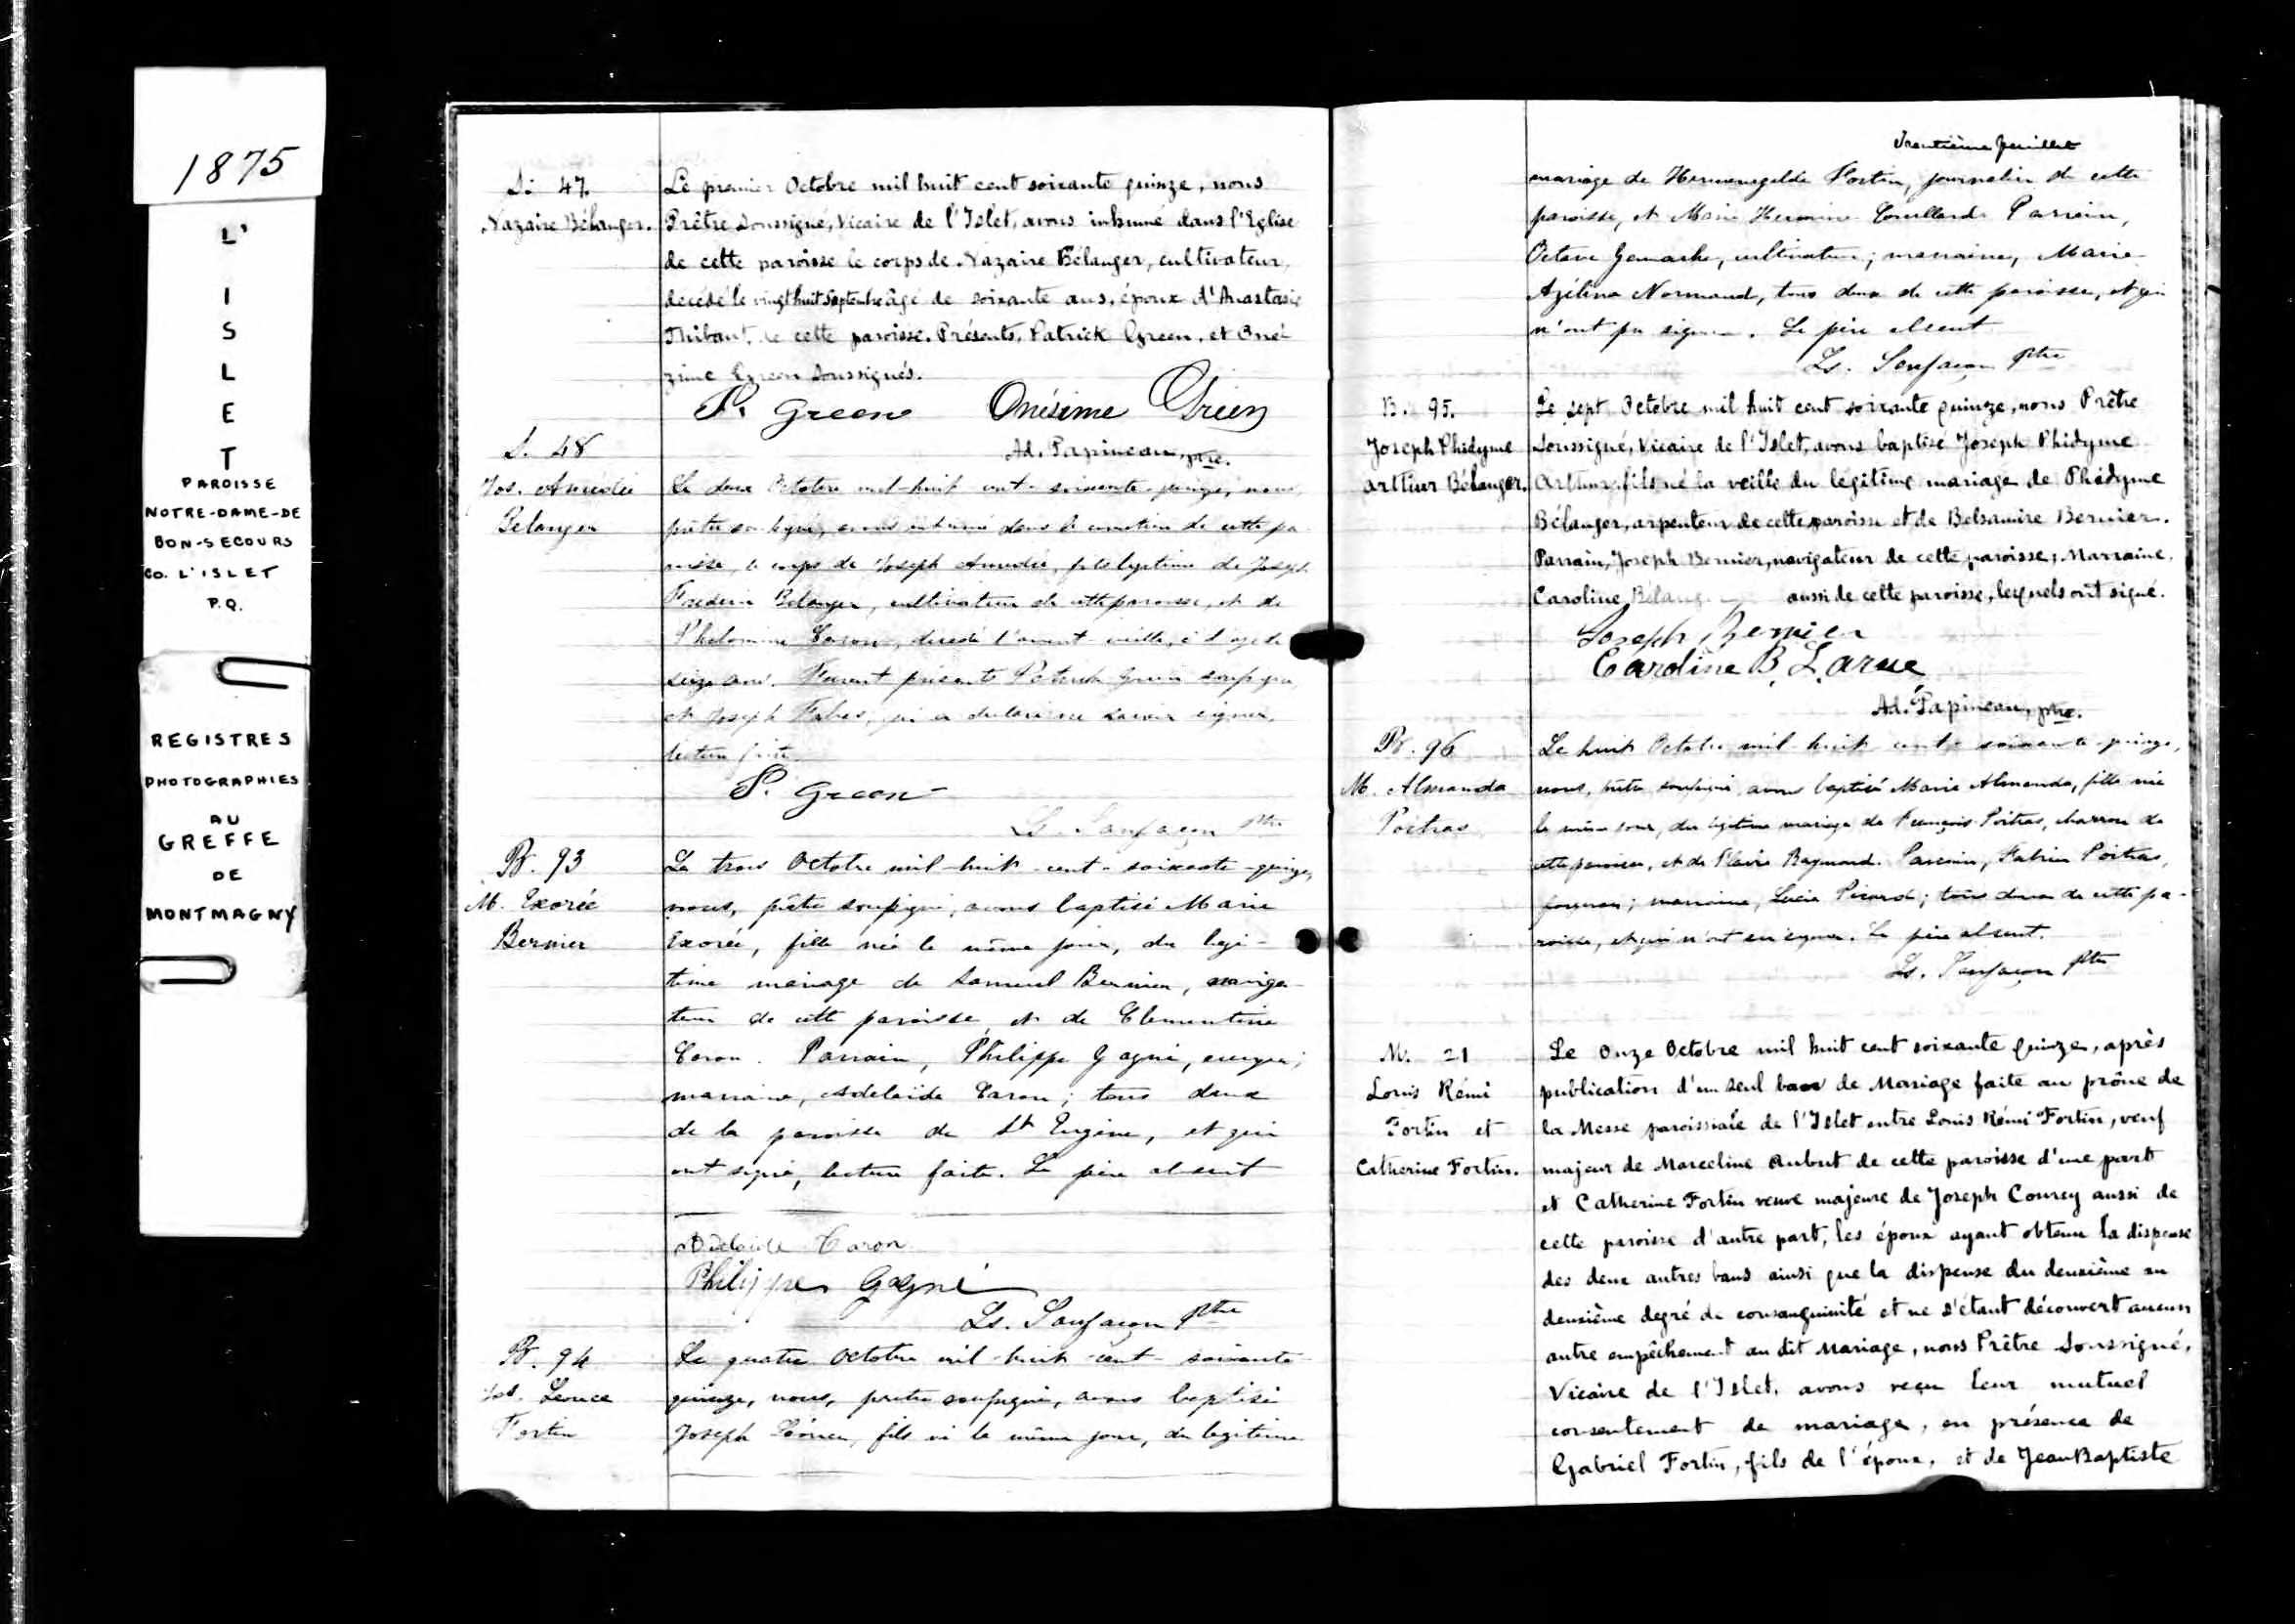 1875
L'
I
S
L
E
T
PAROISSE
NOTRE-DAME-DE
BON-SECOURS
CO. L'ISLET
P.Q.
REGISTRES
PHOTOGRAPHIES
AU
GREFFE
DE
MONTMAGNY
S. 47.
Nazaire Bélanger.
Le premier Octobre mil huit cent soixante quinze, nous
Prêtre Soussigné, Vicaire de l'Islet, avons inhumé dans l'Eglise
de cette paroisse le corps de Nazaire Bélanger, cultivateur,
décédé le vingt huit Septembre âgé de soixante ans, époux d'Anastasie
Thibaut, de cette paroisse. Présents, Patrick Green, et Oné-
zime Green Soussignés.
P. Green Onésime Grien
Ad. Papineau, ptre.
S. 48
Jos. Amédée
Belanger
Le deux Octobre mil-huit cent-soixante-quinze, nous,
prêtre soussigné, avons inhumé dans le cimetière de cette pa
roisse, le corps de Joseph Amédée, fils légitime de Joseph
Frederic Belanger, cultivateur de cette paroisse, et de
Philomène Caron, décédé l'avant-veille, à l'age de
seize ans. Furent présents Patrick Green soussigné,
et Joseph qui a déclaré ne savoir signer,
lecture faite.
P. Green
Ls. Sanfaçon Ptre
B. 93
M. Exorée
Bernier
Le trois Octobre mil-huit-cent-soixante-quinze,
nous, prêtre soussigné, avons baptisé Marie
Exorée, fille née le même jour, du légi-
time mariage de Samuel Bernier, naviga-
teur de cette paroisse, et de Clementine
Caron. Parrain, Philippe Gagné,
marraine, Adelaïde Caron; tous deux
de la paroisse de St Eugène, et qui
ont signé, lecture faite. Le père absent
Adelaide Caron
Philippe Gagné
Ls. Sanfaçon Ptre
B. 94
Jos. Leonce
Fortin
Le quatre Octobre mil-huit-cent-soixante-
quinze, nous, prêtre soussigné, avons baptisé
Joseph Léonce, fils né le même jour, du légitime
Trentième feuillet
mariage de Hermenegilde Fortin, journalier de cette
paroisse, et Marie Couillard. Parrain,
Octave Gamache, cultivateur; marraine, Marie-
Azélina Normand, tous deux de cette paroisse, et qui
n'ont pu signer. Le père absent
Ls. Sanfaçon Ptre
B. 95.
Joseph Phidyme
Arthur Bélanger.
Le sept Octobre mil huit cent soixante quinze, nous Prêtre
Soussigné, Vicaire de l'Islet, avons baptisé Joseph Phidyme
Arthur, fils né la veille du légitime mariage de Phidyme
Bélanger, arpenteur de cette paroisse et de Belsamire Bernier.
Parrain, Joseph Bernier, navigateur de cette paroisse; Marraine,
Caroline Bélanger aussi de cette paroisse, lesquels ont signé.
Joseph Bernier
Caroline B. Larue
Ad. Papineau, ptre.
B. 96
M. Almanda
Poitras
Le huit Octobre mil-huit-cent-soixante-quinze,
nous, prêtre soussigné avons baptisé Marie Almanda, fille née
le même jour, du légitime mariage de François Poitras, charron de
cette paroisse, et de Flavie Raymond. Parrain, Fabien Poitras,
forgeron; marraine, Lucie Picard; tous deux de cette pa-
roisse, et qui n'ont su signer. Le père absent.
Ls. Sanfaçon Ptre
M. 21
Louis Rémi
Fortin et
Catherine Fortin.
Le Onze Octobre mil huit cent soixante quinze, après
publication d'un seul banc de Mariage faite au prône de
la Messe paroissiale de l'Islet entre Louis Rémi Fortin, veuf
majeur de Marceline Aubut de cette paroisse d'une part
et Catherine Fortin veuve majeure de Joseph Courcy aussi de
cette paroisse d'autre part, les époux ayant obtenu la dispense
des deux autres bans ainsi que la dispense du deuxième au
deuxième degré de consanguinité et ne s'étant découvert aucun
autre empêchement au dit Mariage, nous Prêtre Soussigné,
Vicaire de l'Islet, avons reçu leur mutuel
consentement de mariage, en présence de
Gabriel Fortin, fils de l'époux, et de Jean Baptiste